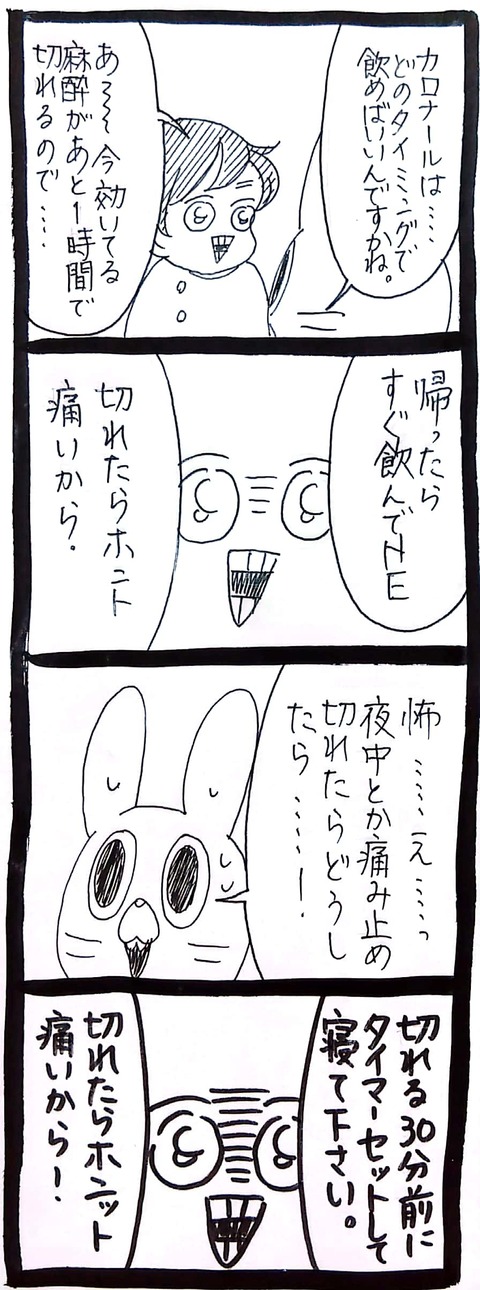 カロナールは……
どのタイミングで
飲めばいいんですかね。
あ～～今効いてる
麻酔があと1時間で
切れるので……
帰ったら
すぐ飲んでNE
切れたらホント
痛いから.
怖……え……っ
夜中とか痛み止め
切れたらどうし
たら……!
切れる30分前に
タイマーセットして
寝て下さい。
切れたらホンット
痛いから!